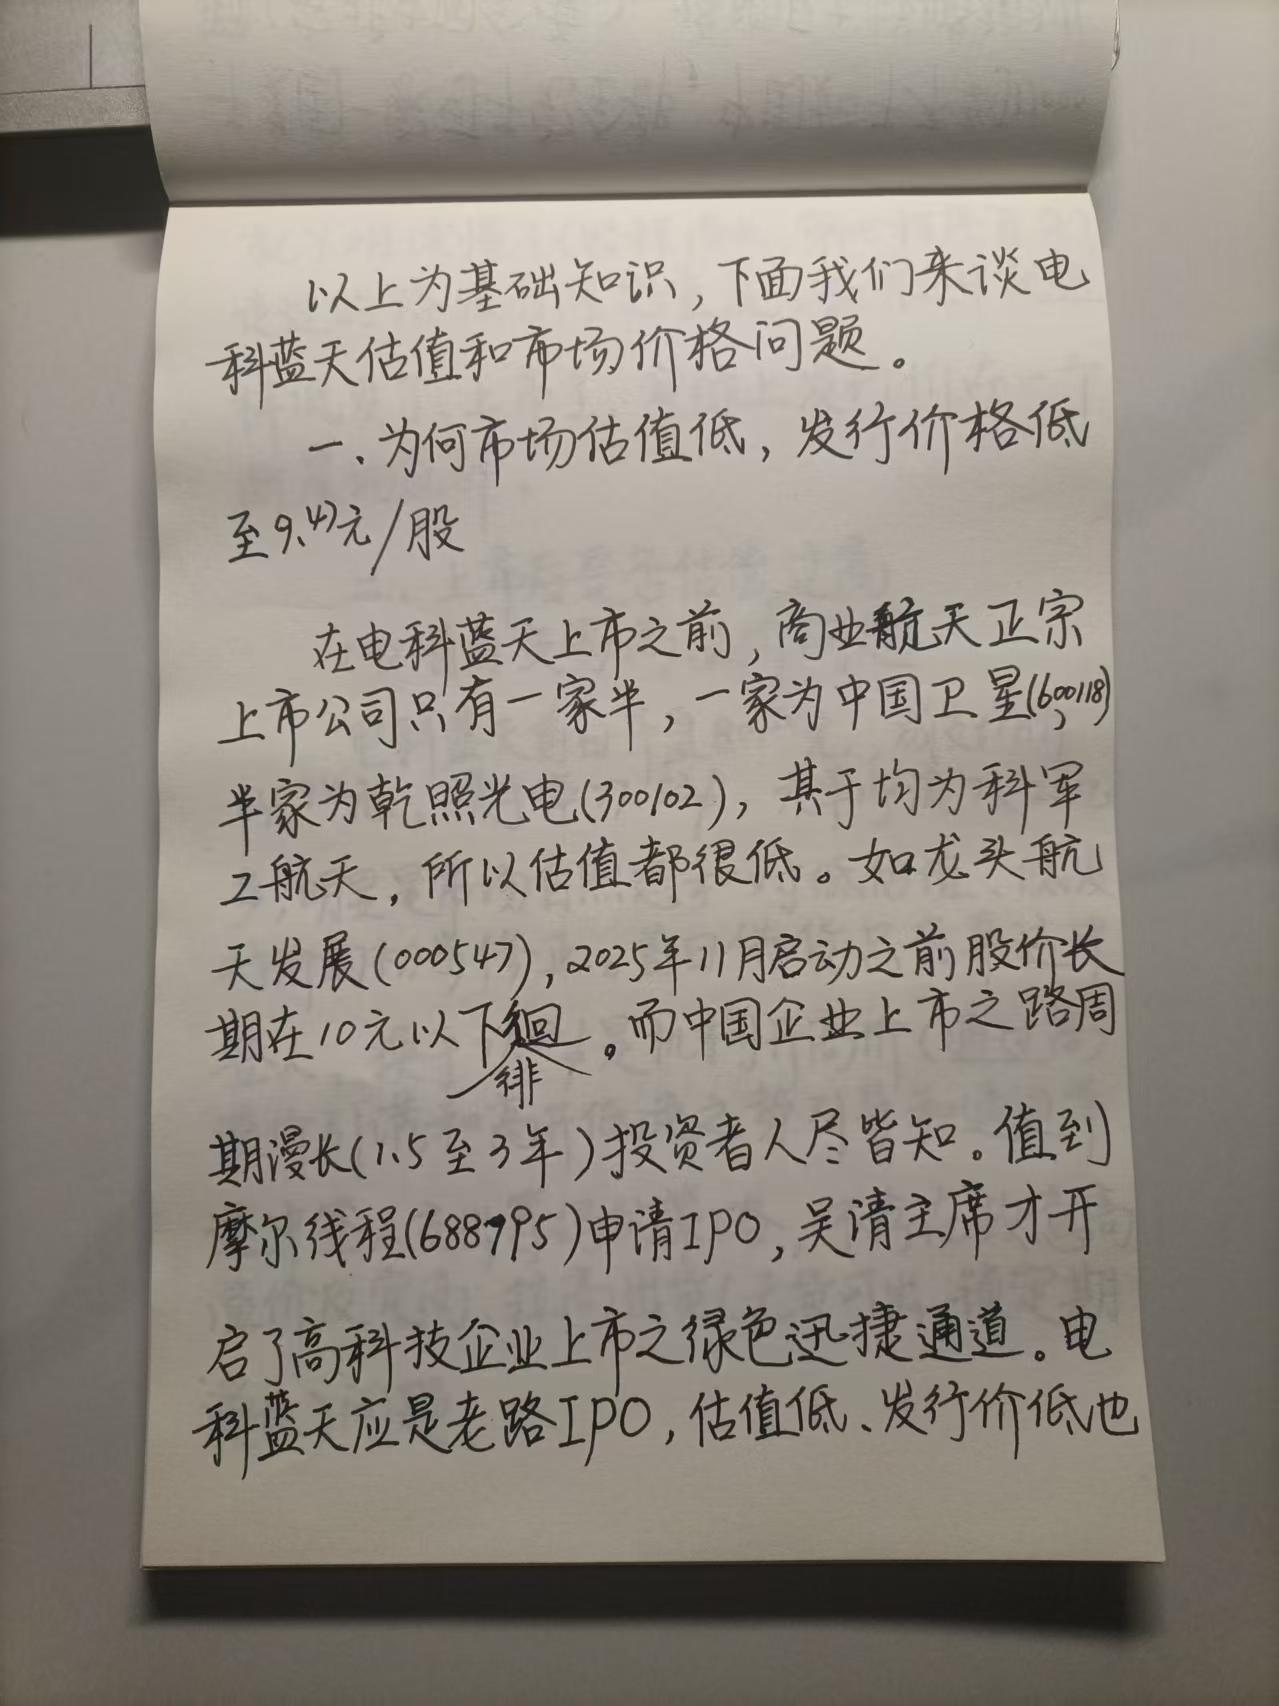 以上为基础知识，下面我们来谈电
科蓝天估值和市场价格问题。
一、为何市场估值低，发行价格低
至9.47元/股
在电科蓝天上市之前，商业航天正宗
上市公司只有一家半，一家为中国卫星(600118),
半家为乾照光电(300102)，其于均为科军
工航天，所以估值都很低。如龙头航
天发展(000547)，2025年11月启动之前股价长
期在10元以下徘徊。而中国企业上市之路周
期漫长(1.5至3年)投资者人尽皆知。值到
摩尔线程(688795)申请IPO，吴清主席才开
启了高科技企业上市之绿色迅捷通道。电
科蓝天应是老路IPO，估值低、发行价低也